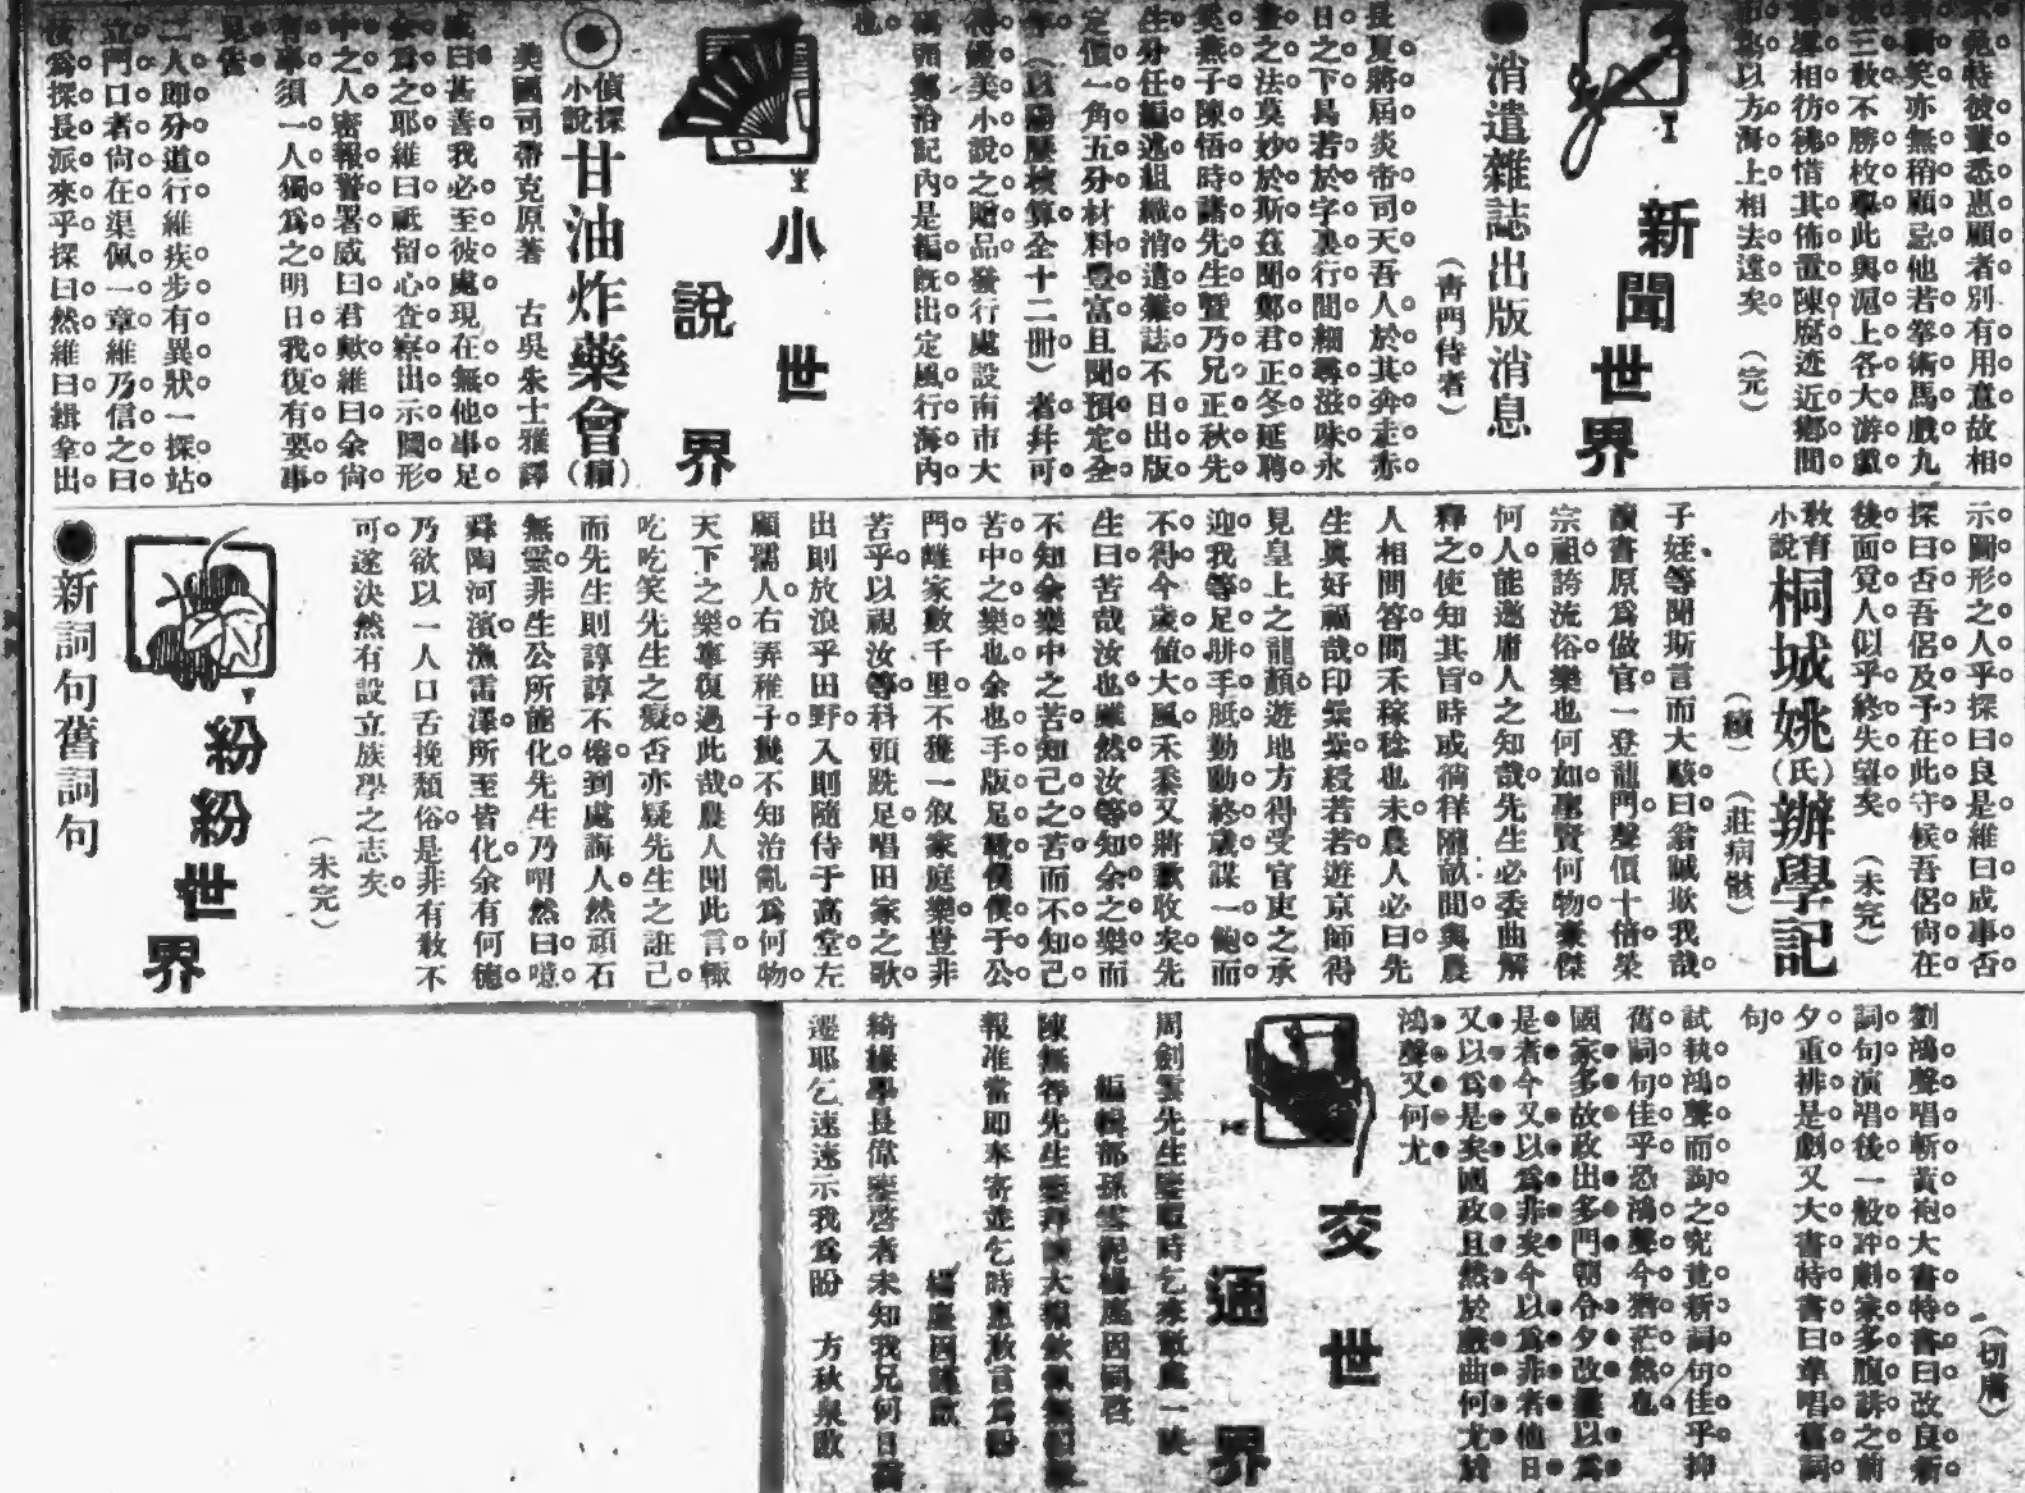 不能特彼輩悉惠顧者別有用意故相
笑亦無稍顧忌他若拳術馬戲九
三敢不勝枚舉此與滬上各大游戲
相彷彿惜其佈置陳腐迹近鄉間
以方海上相去遠矣 (完)
新聞世界
●消遣雜誌出版消息
(青門侍者)
長夏將屆炎帝司天吾人於其奔走赤
日之下曷若於字裏行間細尋滋味永
晝之法莫妙於斯茲聞鄭君正冬延聘
吳燕子陳悟時諸先生暨乃兄正秋先
生分任編述組織消遣雜誌不日出版
定價一角五分材料豐富且聞預定全
年(以陽曆核算全十二冊)者幷可
得優美小說之贈品發行處設南市大
碼頭鄭洽記內是編旣出定風行海內
也
小說世界
偵探小說 甘油炸藥會(續)
美國司帶克原著 古吳朱士雅譯
曰甚善我必至彼處現在無他事足
余爲之耶維曰祇留心查察出示圖形
中之人密報警署威曰君歟維曰余尙
有事須一人獨爲之明日我復有要事
見告
二人卽分道行維疾步有異狀一探站
立門口者尙在渠佩一章維乃信之曰
汝爲探長派來乎探曰然維曰緝拿出
示圖形之人乎探曰良是維曰成事否
探曰否吾侶及予在此守候吾侶尙在
後面覓人似乎終失望矣 (未完)
敎育小說 桐城姚(氏)辦學記
(續) (莊病骸)
子姪等聞斯言而大駭曰翁誠欺我哉
讀書原爲做官一登龍門聲價十倍榮
宗祖誇流俗樂也何如聖賢何物豪傑
何人能邀庸人之知哉先生必委曲解
釋之使知其旨時或徜徉隴畝間與農
人相問答問禾稼稔也未農人必曰先
生眞好福哉印纍纍綬若若遊京師得
見皇上之龍顏遊地方得受官吏之承
迎我等足胼手胝勤動終歲謀一飽而
不得今歲値大風禾黍又將歉收矣先
生曰苦哉汝也雖然汝等知余之樂而
不知余樂中之苦知己之苦而不知己
苦中之樂也余也手版足靴僕僕于公
門離家數千里不獲一叙家庭樂豈非
苦乎以視汝等科頭跣足唱田家之歌
出則放浪乎田野入則隨侍于高堂左
顧孺人右弄稚子幾不知治亂爲何物
天下之樂寧復過此哉農人聞此言輒
吃吃笑先生之癡否亦疑先生之誑己
而先生則諄諄不倦到處誨人然頑石
無靈非生公所能化先生乃喟然曰噫
舜陶河濱漁雷澤所至皆化余有何德
乃欲以一人口舌挽類俗是非有敎不
可遂決然有設立族學之志矣
(未完)
紛紛世界
●新詞句舊詞句
(切膚)
劉鴻聲唱斬黃袍大書特書曰改良新
詞句演唱後一般評劇家多腹誹之前
夕重排是劇又大書特書曰準唱舊詞
句
試執鴻聲而詢之究竟新詞句佳乎抑
舊詞句佳乎恐鴻聲今猶茫然也
國家多故政出多門朝令夕改以爲
是者今又以爲非矣今以爲非者他日
又以爲是矣國政且然於戲曲何尤於
鴻聲又何尤
交通世界
周劍雲先生鑒暇時乞來敝處一談
編輯部孫雪泥楊塵因同啓
陳無咎先生鑒拜讀大欽佩無
報准當卽奉寄並乞時惠敎言爲盼
楊塵因謹啟
綺緣學長偉鑒啓者未知我兄何日
遷耶乞速速示我爲盼 方秋泉啟